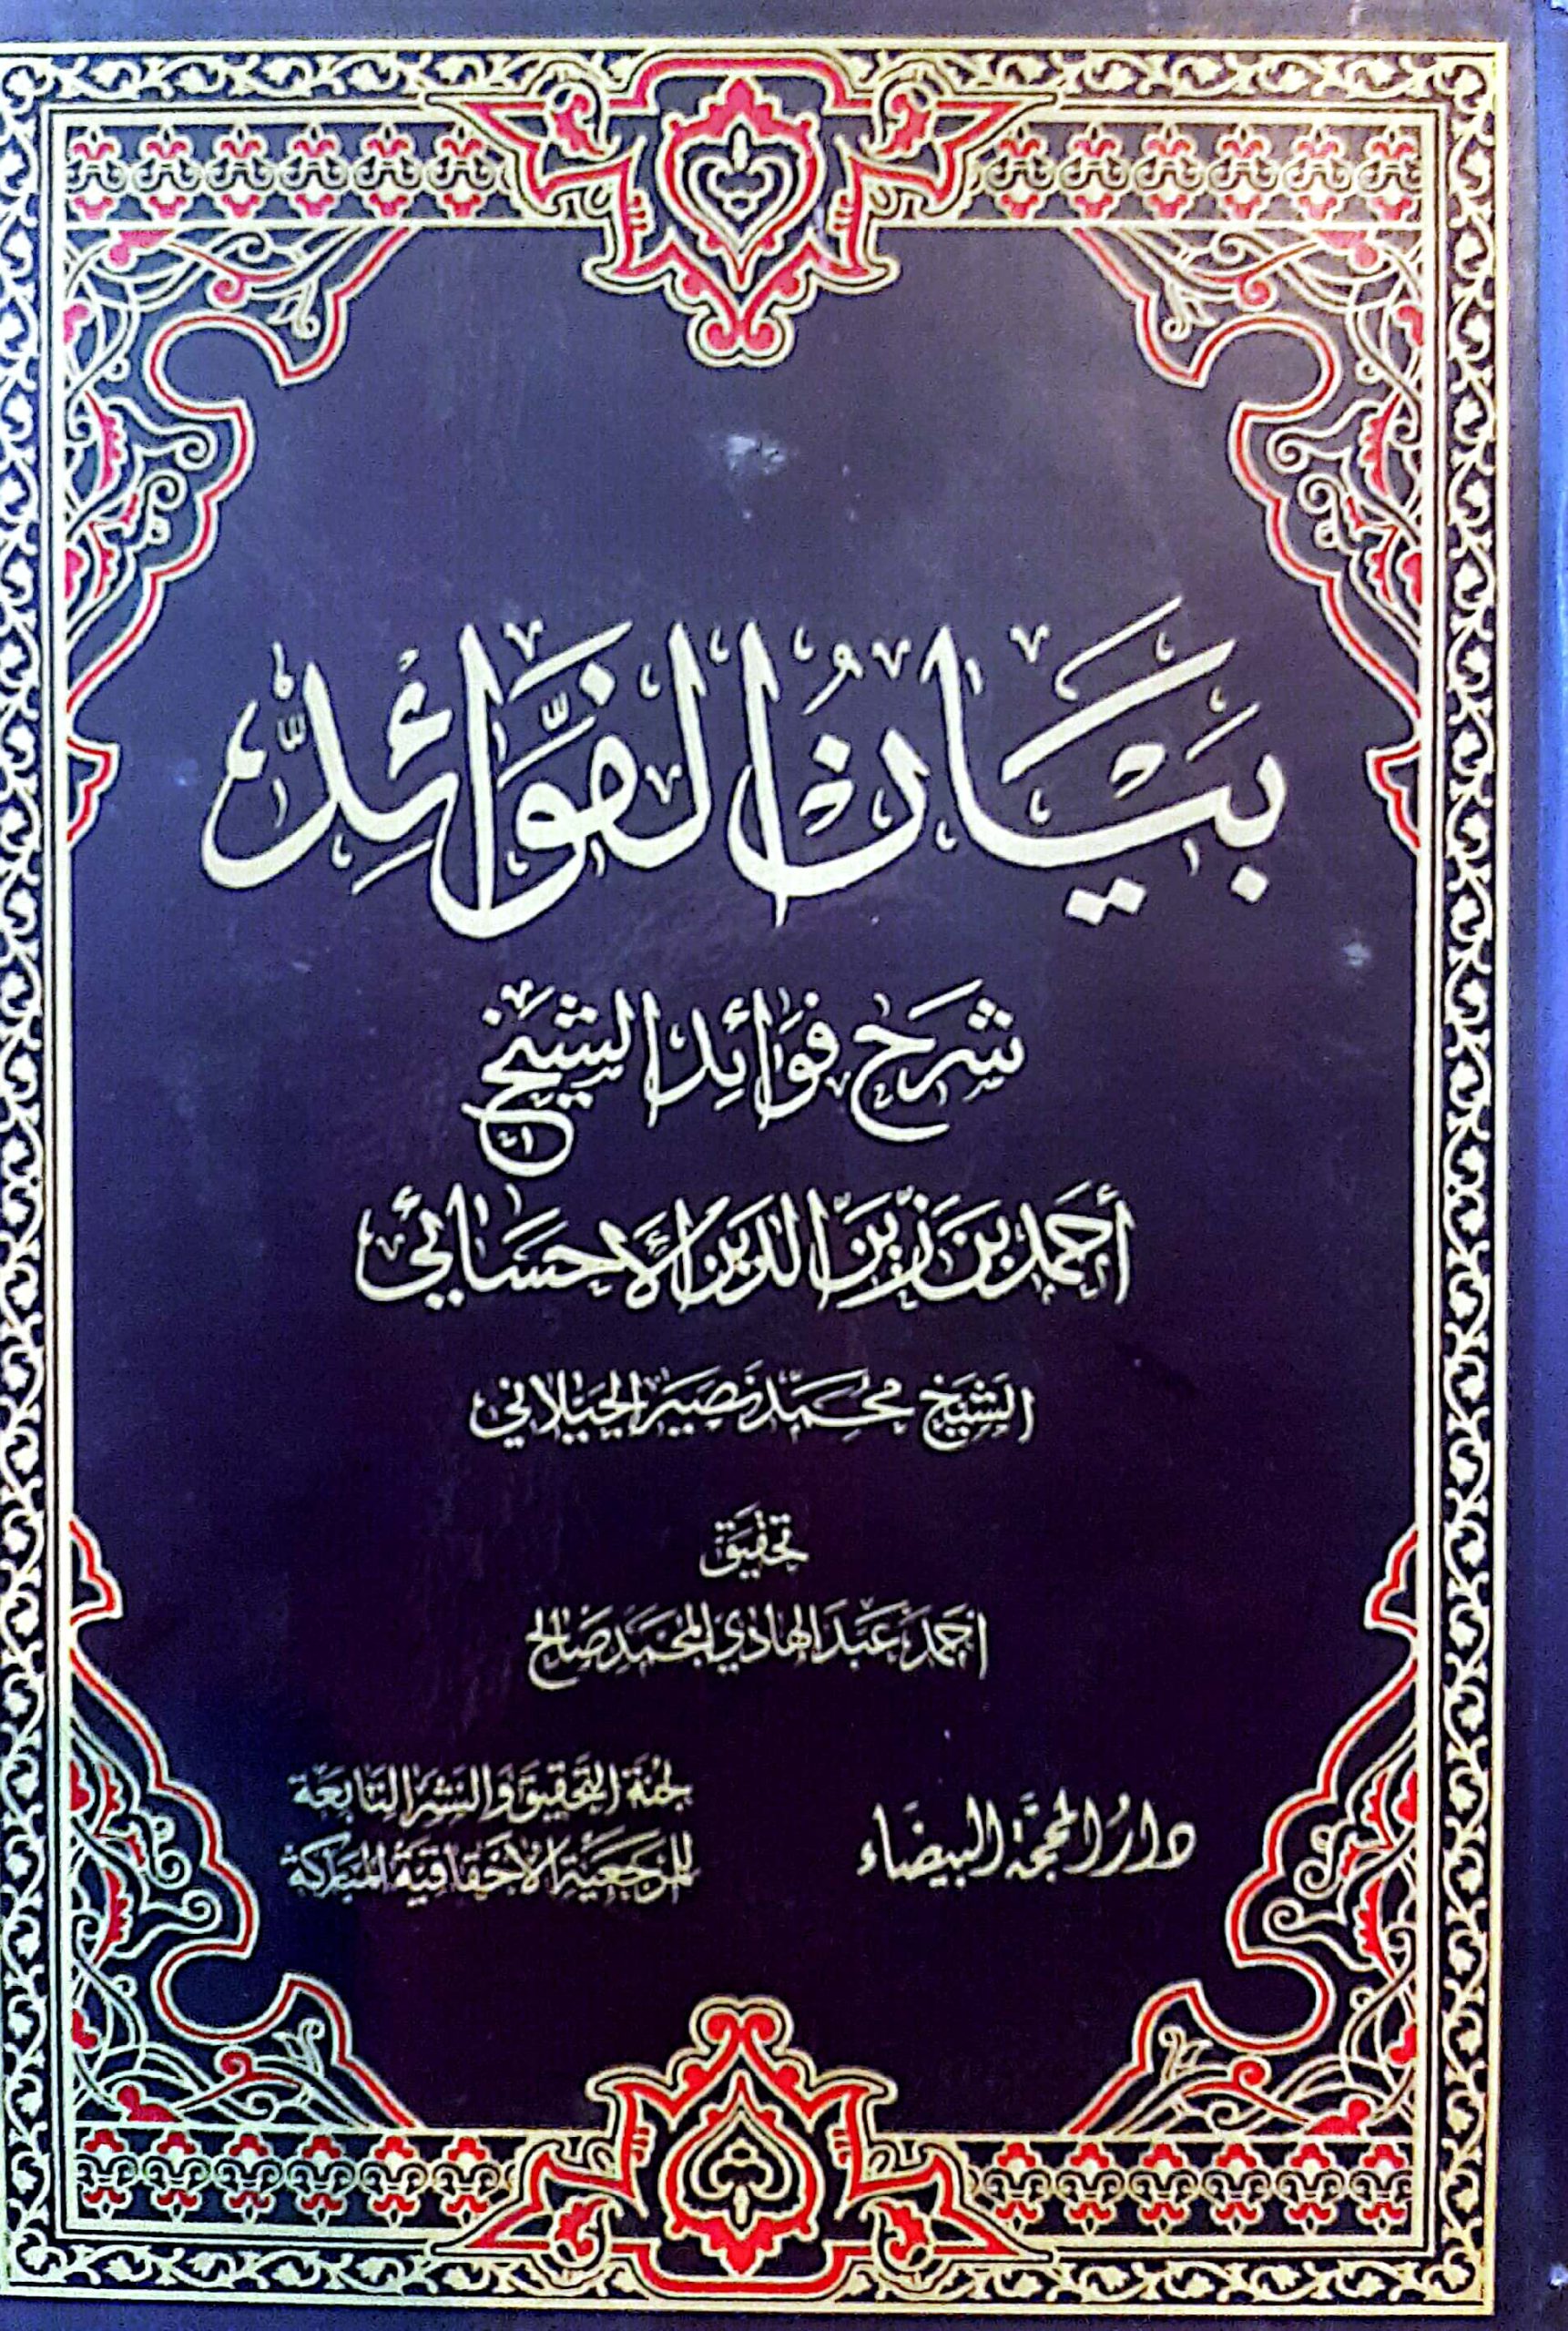 بَيَانُ الفَوَائِدِ
شرح فوائد الشيخ
أحمد بن زين الدين الأحسائي
الشيخ محمد نصير الجيلاني
تحقيق
أحمد عبد الهادي المحمد صالح
دار المحجة البيضاء
لجنة التحقيق والنشر التابعة
للمرجعية الأحقاقية المباركة